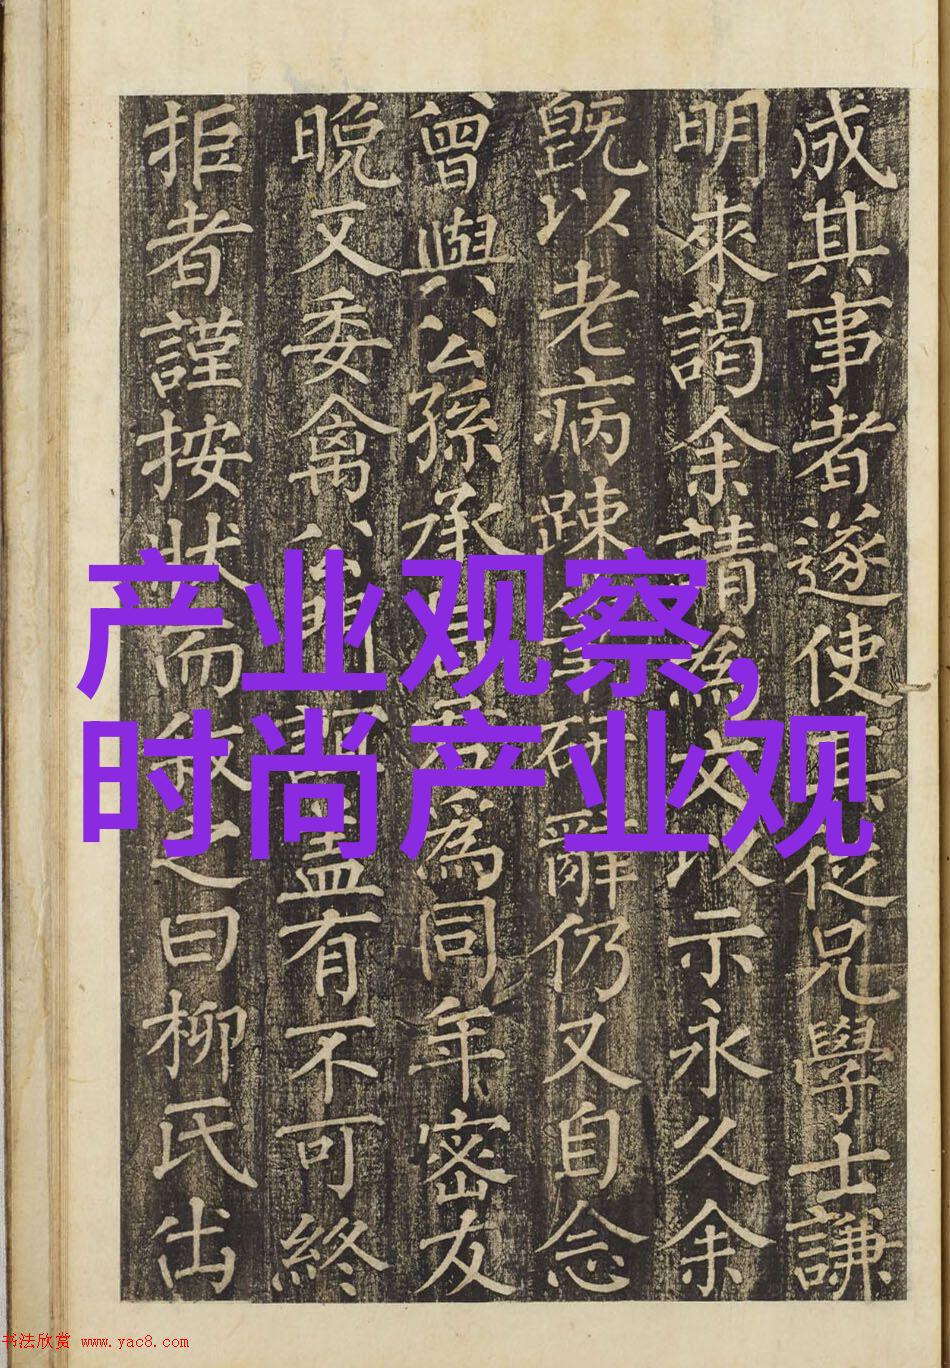 成其事者遂使其從兄學士謙
明來謁余請為文以示永久余
既以老病踈研辭仍又自念
曾與公孫承為同年密友
晚又委禽公門盖有不可終
拒者謹按狀而叙之曰柳氏出
产业观察,
时尚产业观
书法欣赏 www.yac8.com